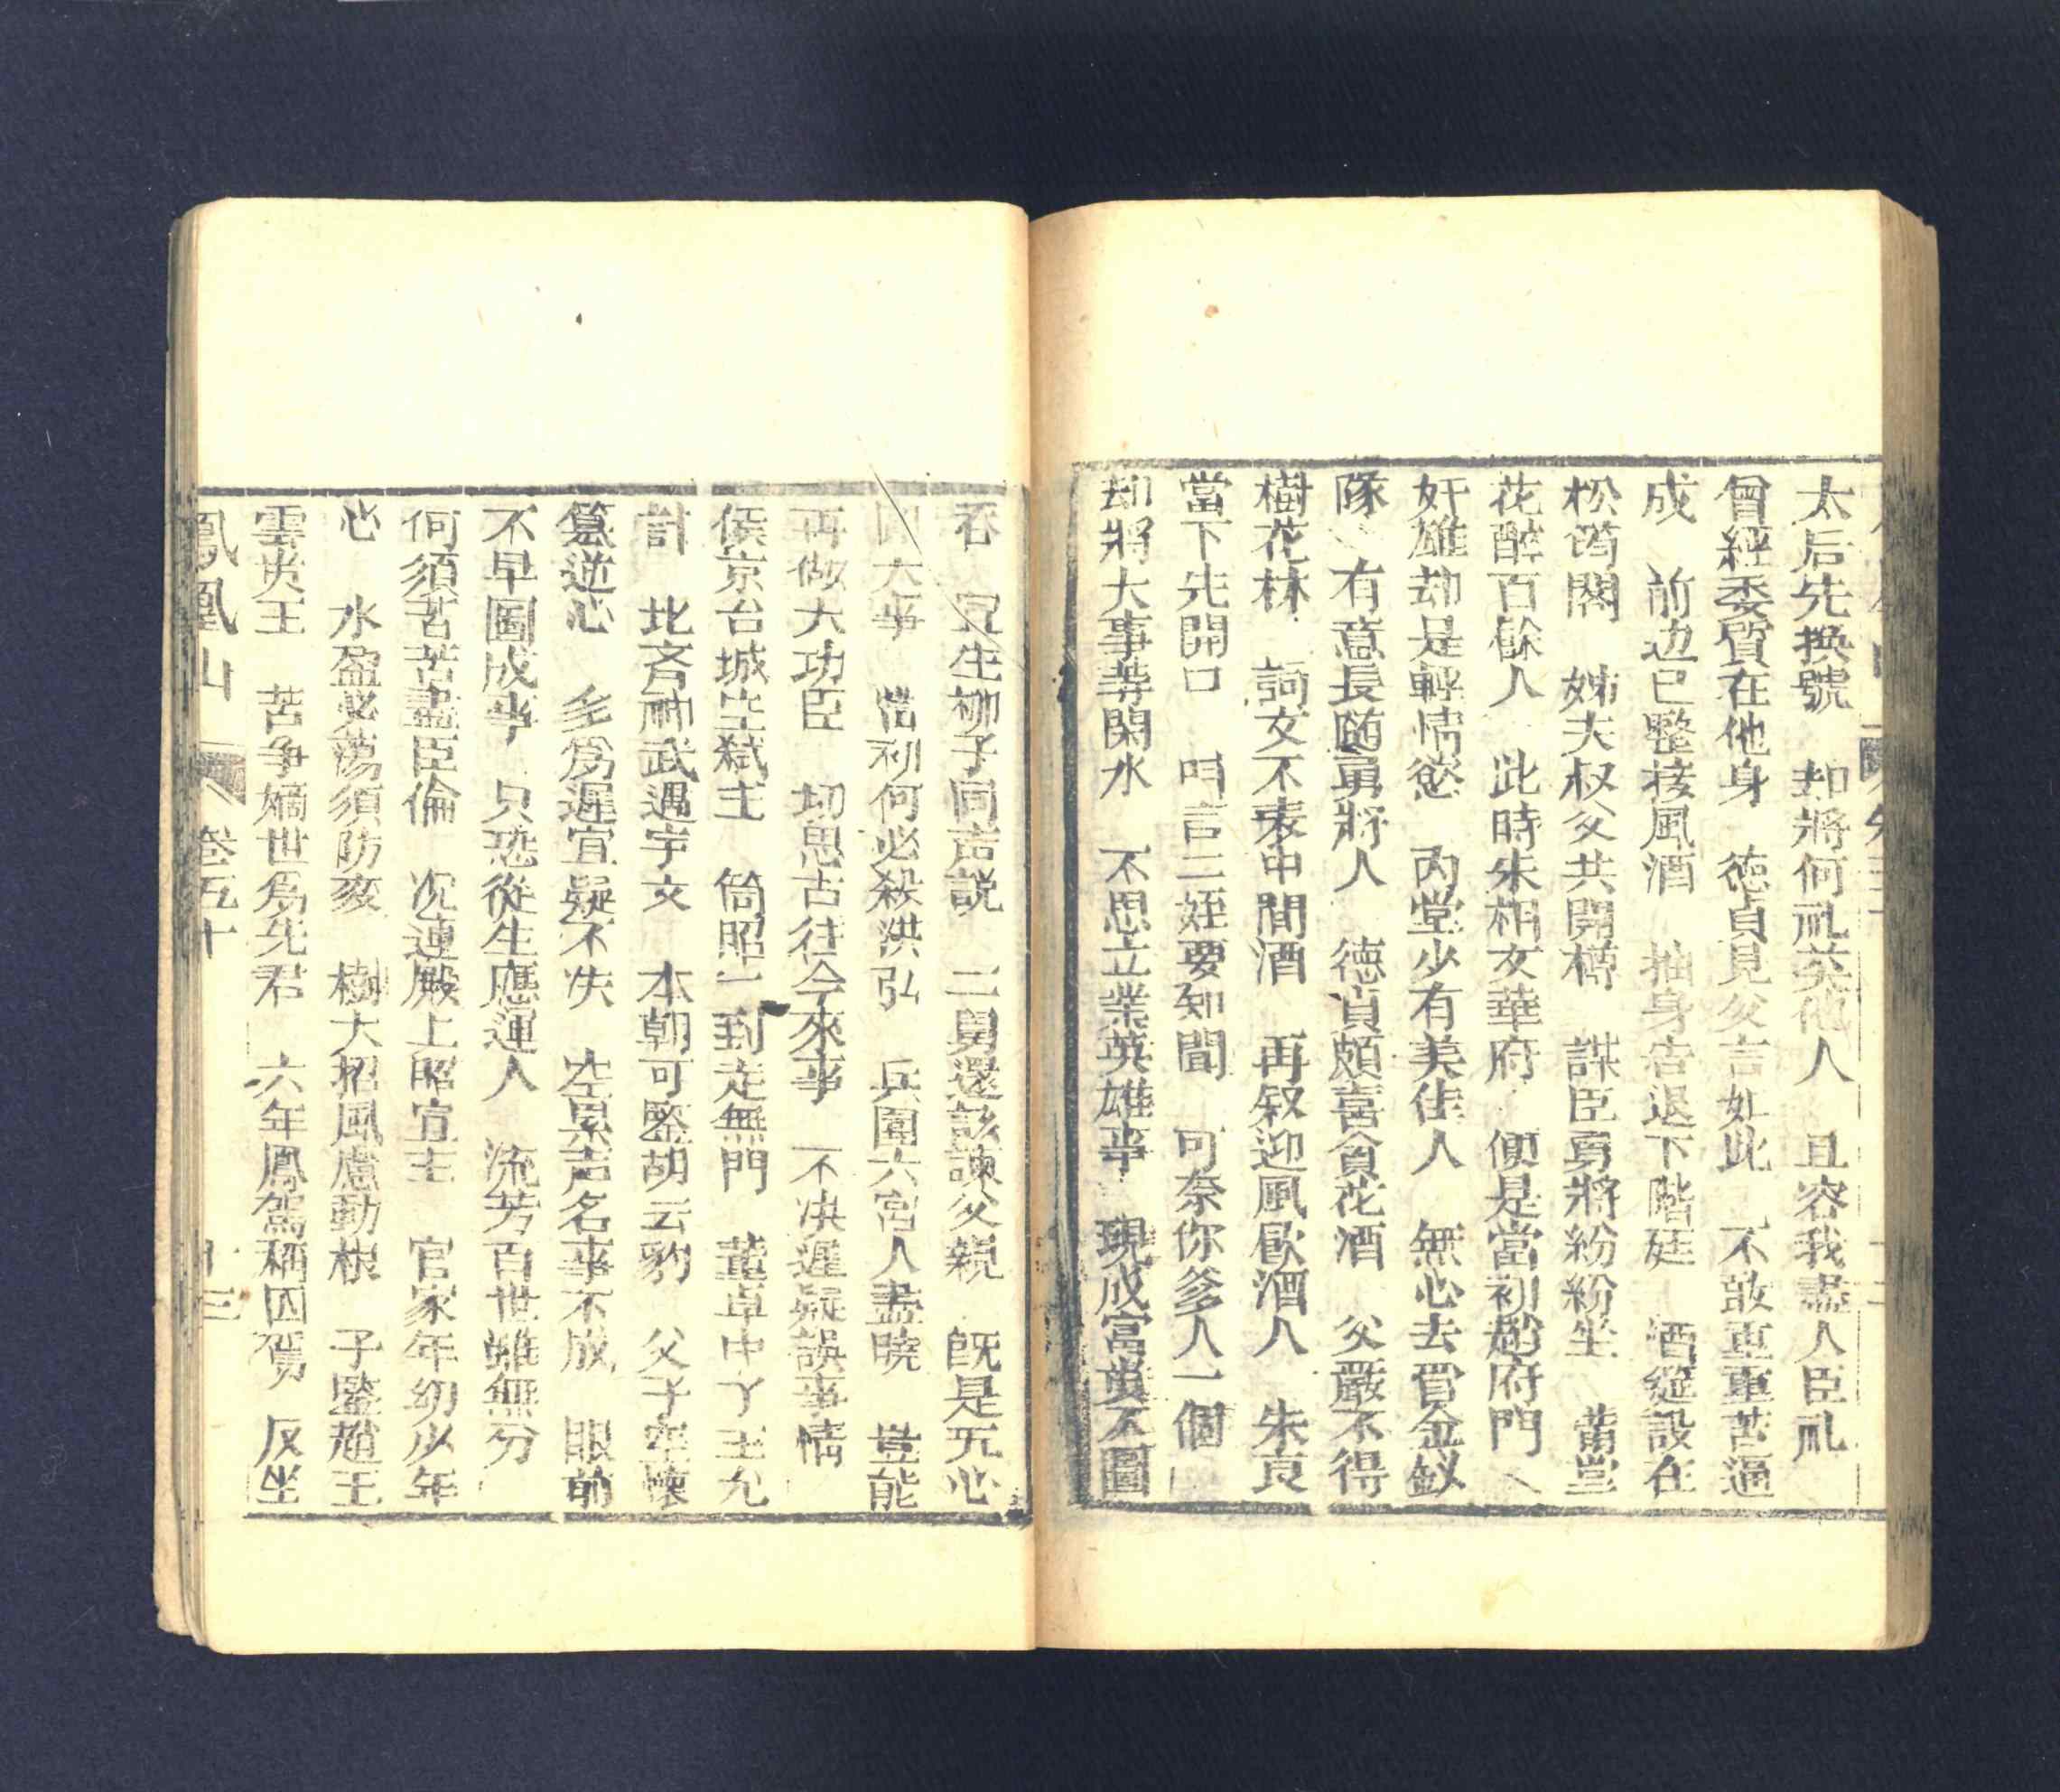 太后先換號　却將何礼英他人　且容我盡人臣礼
曾經委質在他身　德貞見父言如此　不敢重重苦逼
成　前边已整接風酒　抽身告退下階廷　酒筵設在
松筠閣　姊夫叔父共開樽　謀臣勇將紛紛坐　黃堂
花醉百餘人　此時朱相女華府　便是當初趙府門
奸雄却是輕情慾　內堂少有美佳人　無心去買金釵
隊　有意長随勇將人　德貞頗喜貪花酒　父嚴不得
樹花林　詞文不表中間酒　再叙迎風飲酒人　朱哀
當下先開口　呌言二姪要知聞　可奈你爹人一個
却將大事等閑水　不思立業英雄事　現成富貴不圖
吞　宜生柳子同声説　二舅還該諫父親　旣是无心
圖大事　當初何必殺洪弘　兵圍六宮人盡曉　豈能
再做大功臣　切思古往今來事　不决遲疑誤事情
侯京台城生弑主　筒昭一到走無門　董卓中了王允
計　北斉神武遇宇文　本朝可鑒胡云豹　父子空懷
篡逆心　多為遲宜疑不决　空累声名事不成　眼前
不早圖成事　只恐從生應運人　流芳百世雖無分
何須苦苦盡臣倫　况連殿上昭宣主　官家年幼少年
心　水盈必蕩須防変　樹大招風慮動根　子鑒趙王
雲夹王　苦争嫡世為先君　六年鳳駕稱囚駕　反坐
鳳凰山　卷五十　三